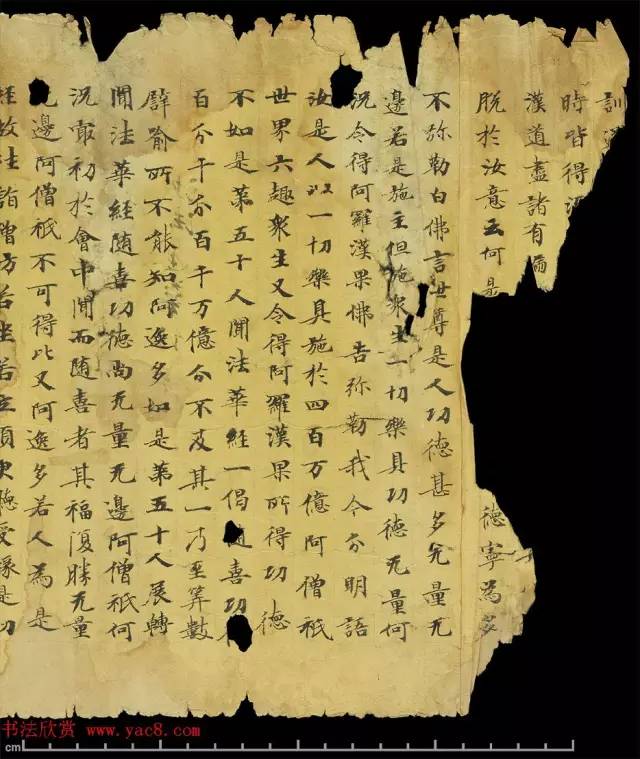 訓
時皆得
漢道盡諸有漏
脫於汝意云何是 德寧為多
不弥勒白佛言世尊是人功德甚多无量无
邊若是施主但施衆生一切樂具功德无量何
況令得阿羅漢果佛告弥勒我今分明語
汝是人以一切樂具施於四百万億阿僧祇
世界六趣衆生又令得阿羅漢果所得功德
不如是第五十人聞法華經一偈随喜功
百分千分百千万億分不及其一乃至筭數
譬喻所不能知阿逸多如是第五十人展轉
聞法華經随喜功德尚无量无邊阿僧祇何
況㝡初於會中聞而随喜者其福復勝无量
邊阿僧祇不可得比又阿逸多若人為是
經故往詣僧坊若坐若立須臾聽受緣是功
书法欣赏 www.yac8.com
cm